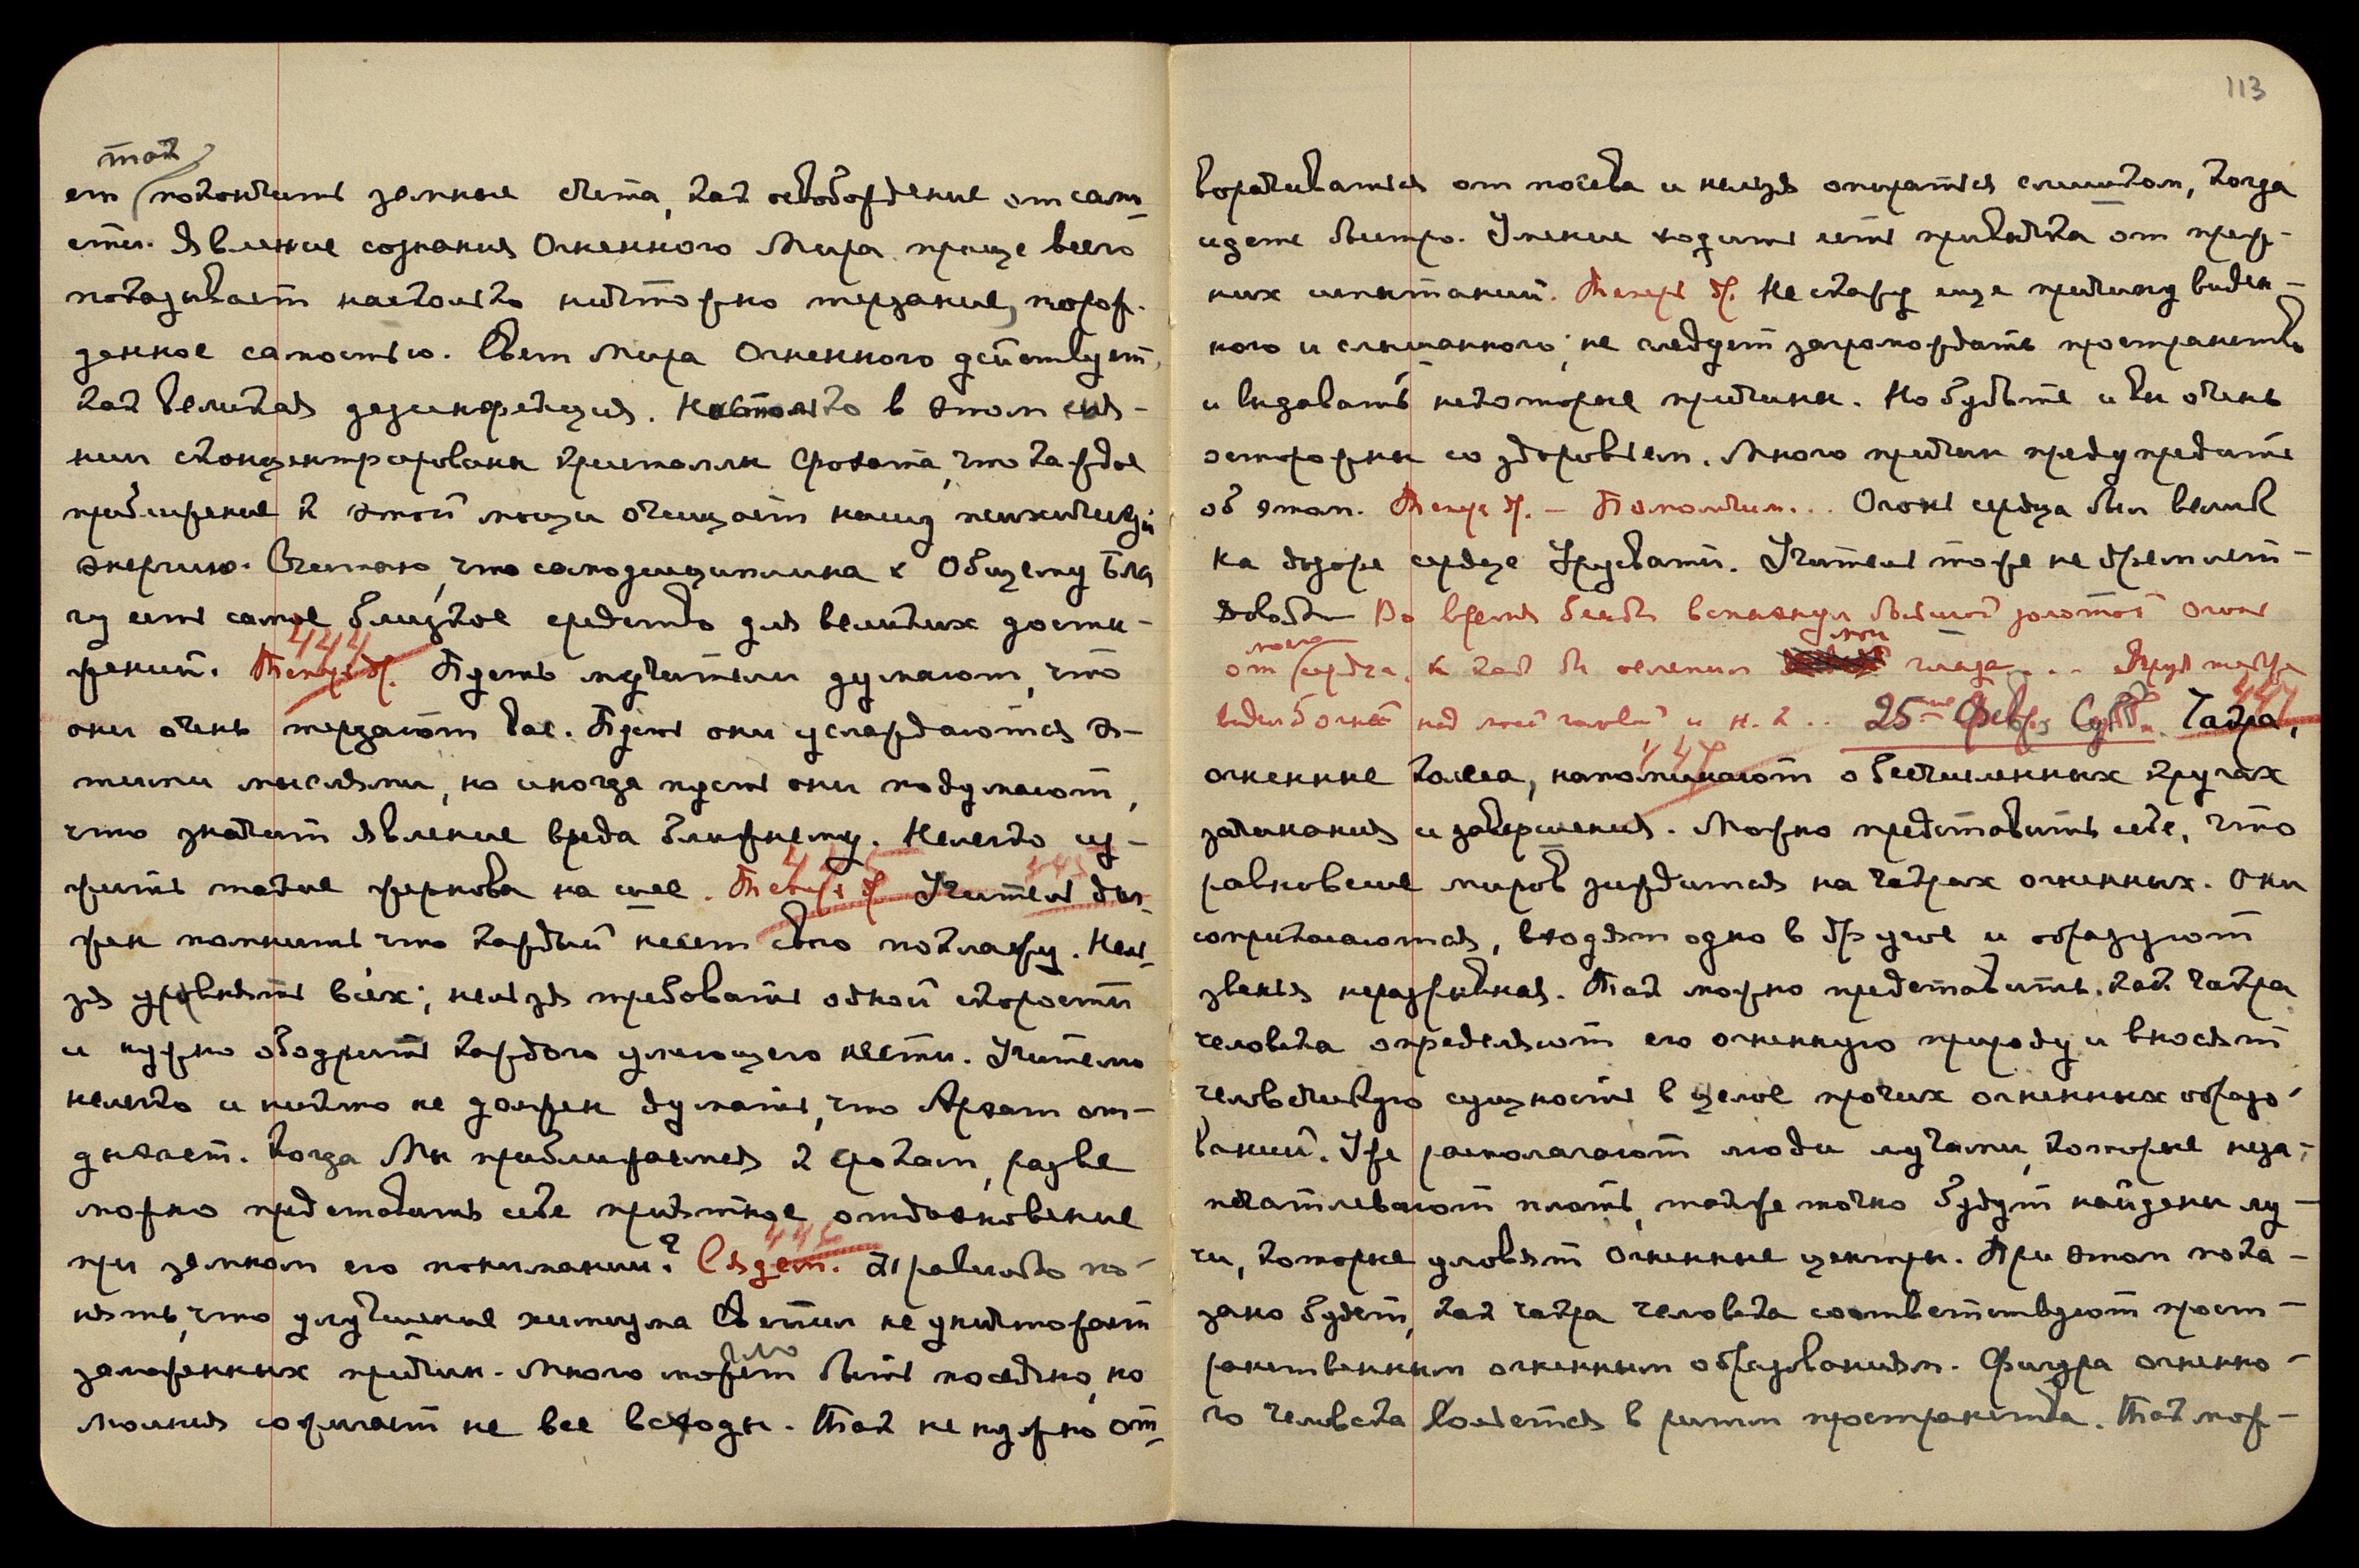 113
так
ет покончить земные счета, как освобождение от само-
сти. Явление сознания Огненного Мира проще всего
показывает насколько ничтожно терзание, порож-
денное самостью. Свет Мира Огненного действует,
как великая дезинфекция. Настолько в этом сия-
нии сконцентрированы кристаллы Фохата, что каждое
приближение к этой мощи очищает нашу психическую
энергию. Считаю, что самодисциплина к Общему Бла-
гу есть самое близкое средство для великих дости-
444
жений. Теперь др. Пусть мучители думают, что
они очень терзают вас. Пусть они услаждаются э-
тими мыслями, но иногда пусть они подумают,
что значит явление вреда ближнему. Нелегко су-
445
жить такие жернова на шее. Теперь др. Учитель дол-
жен помнить что каждый несет свою поклажу. Нель-
зя уравнять всех; нельзя требовать одной скорости
и нужно ободрить каждого умеющего нести. Учителю
нелегко и никто не должен думать, что Архат от-
дыхает. Когда Мы приближаемся к срокам, разве
можно представить себе приятное отдохновение
446
при земном его понимании? Сядет. др.
нять, что улучшение химизма Светил не уничтожит
заложенных причин. Много может быть посеяно, но
молния сожигает не все всходы. Так не нужно от-
ворачиваться от посева и нельзя опираться слишком, когда
идете быстро. Умение ходить есть привычка от преж-
них испытаний. Теперь др. Не скажу еще причину виден-
ного и слышанного; не следует загромождать пространство
и выдавать некоторые причины. Но будьте и вы очень
осторожны со здоровьем. Много причин предупредить
об этом. Теперь др. – Помолчим... Огонь сердца был велик
на дозоре сердце Урусвати. Учитель тоже не дремлет –
довольно Во время беседы вспыхнул большой золотой огонь
моего мои
от сердца, и как бы ослепил глаза... Яруя также
видел огней над моей головой и т. д. .. 25ое Февр. Субб. Чакра,
447
огненные колеса, напоминают о бесчисленных кругах
зачинания и завершения. Можно представить себе, что
равновесие миров зиждится на чакрах огненных. Они
соприкасаются, входят одно в другое и образуют
звенья неразрывная. Так можно представить, как чакра
человека определяют его огненную природу и вносят
человеческую сущность в целое прочих огненных образо-
ваний. Уже располагают люди лучами, которые неза-
печатлевают плоть, также точно будут найдены лу-
чи, которые уловят огненные центры. При этом пока-
зано будет, как чакра человека соответствуют прост-
ранственным огненным образованиям. Фигура огненно-
го человека вольется в ритм пространства. Так мож-